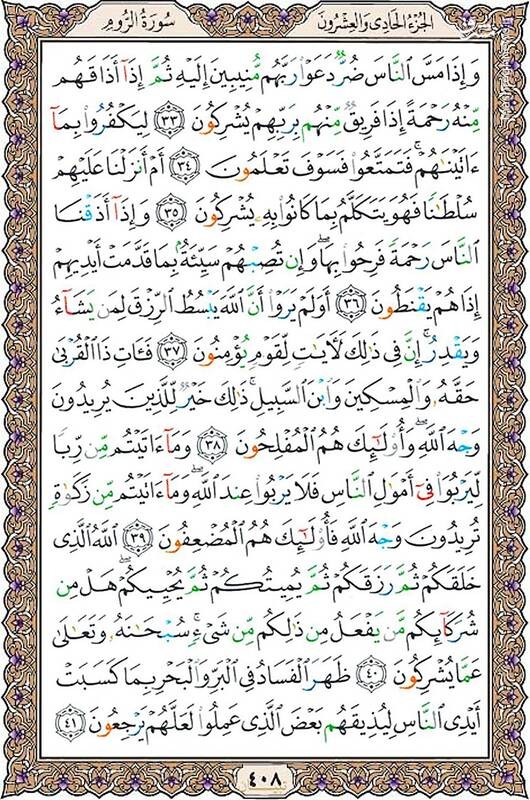 الجزء الحادی والعشرون
سورة الروم
وَإِذَا مَسَّ ٱلنَّاسَ ضُرٌّ دَعَوۡا۟ رَبَّهُم مُّنِيبِينَ إِلَيۡهِ ثُمَّ إِذَآ أَذَاقَهُم
مِّنۡهُ رَحۡمَةً إِذَا فَرِيقٌ مِّنۡهُم بِرَبِّهِمۡ يُشۡرِكُونَ ﴿٣٣﴾ لِيَكۡفُرُوا۟ بِمَآ
ءَاتَيۡنَـٰهُمۡۚ فَتَمَتَّعُوا۟ فَسَوۡفَ تَعۡلَمُونَ ﴿٣٤﴾ أَمۡ أَنزَلۡنَا عَلَيۡهِمۡ
سُلۡطَـٰنًا فَهُوَ يَتَكَلَّمُ بِمَا كَانُوا۟ بِهِۦ يُشۡرِكُونَ ﴿٣٥﴾ وَإِذَآ أَذَقۡنَا
ٱلنَّاسَ رَحۡمَةً فَرِحُوا۟ بِهَاۖ وَإِن تُصِبۡهُمۡ سَيِّئَةُۢ بِمَا قَدَّمَتۡ أَيۡدِيهِمۡ
إِذَا هُمۡ يَقۡنَطُونَ ﴿٣٦﴾ أَوَلَمۡ يَرَوۡا۟ أَنَّ ٱللَّهَ يَبۡسُطُ ٱلرِّزۡقَ لِمَن يَشَآءُ
وَيَقۡدِرُۚ إِنَّ فِي ذَٰلِكَ لَـَٔايَـٰتٍ لِّقَوۡمٍ يُؤۡمِنُونَ ﴿٣٧﴾ فَـَٔاتِ ذَا ٱلۡقُرۡبَىٰ
حَقَّهُۥ وَٱلۡمِسۡكِينَ وَٱبۡنَ ٱلسَّبِيلِۚ ذَٰلِكَ خَيۡرٌ لِّلَّذِينَ يُرِيدُونَ
وَجۡهَ ٱللَّهِۖ وَأُو۟لَـٰٓئِكَ هُمُ ٱلۡمُفۡلِحُونَ ﴿٣٨﴾ وَمَآ ءَاتَيۡتُم مِّن رِّبًا
لِّيَرۡبُوَا۟ فِيٓ أَمۡوَٰلِ ٱلنَّاسِ فَلَا يَرۡبُوا۟ عِندَ ٱللَّهِۖ وَمَآ ءَاتَيۡتُم مِّن زَكَوٰةٍ
تُرِيدُونَ وَجۡهَ ٱللَّهِ فَأُو۟لَـٰٓئِكَ هُمُ ٱلۡمُضۡعِفُونَ ﴿٣٩﴾ ٱللَّهُ ٱلَّذِي
خَلَقَكُمۡ ثُمَّ رَزَقَكُمۡ ثُمَّ يُمِيتُكُمۡ ثُمَّ يُحۡيِيكُمۡۖ هَلۡ مِن
شُرَكَآئِكُم مَّن يَفۡعَلُ مِن ذَٰلِكُم مِّن شَيۡءٍۚ سُبۡحَـٰنَهُۥ وَتَعَـٰلَىٰ
عَمَّا يُشۡرِكُونَ ﴿٤٠﴾ ظَهَرَ ٱلۡفَسَادُ فِي ٱلۡبَرِّ وَٱلۡبَحۡرِ بِمَا كَسَبَتۡ
أَيۡدِي ٱلنَّاسِ لِيُذِيقَهُم بَعۡضَ ٱلَّذِي عَمِلُوا۟ لَعَلَّهُمۡ يَرۡجِعُونَ ﴿٤١﴾
٤٠٨